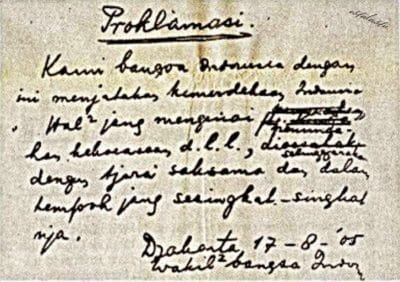 Proklamasi.
Kami bangsa Indonesia dengan
ini menjatakan kemerdekaan Indonesia
Hal² jang mengenai
peminda-
han kekoeasaan, d.l.l., diselenggarakan
dengan tjara saksama dan dalam
tempoh jang sesingkat-singkat
nja.
Djakarta 17-8-'05
Wakil² bangsa Indon